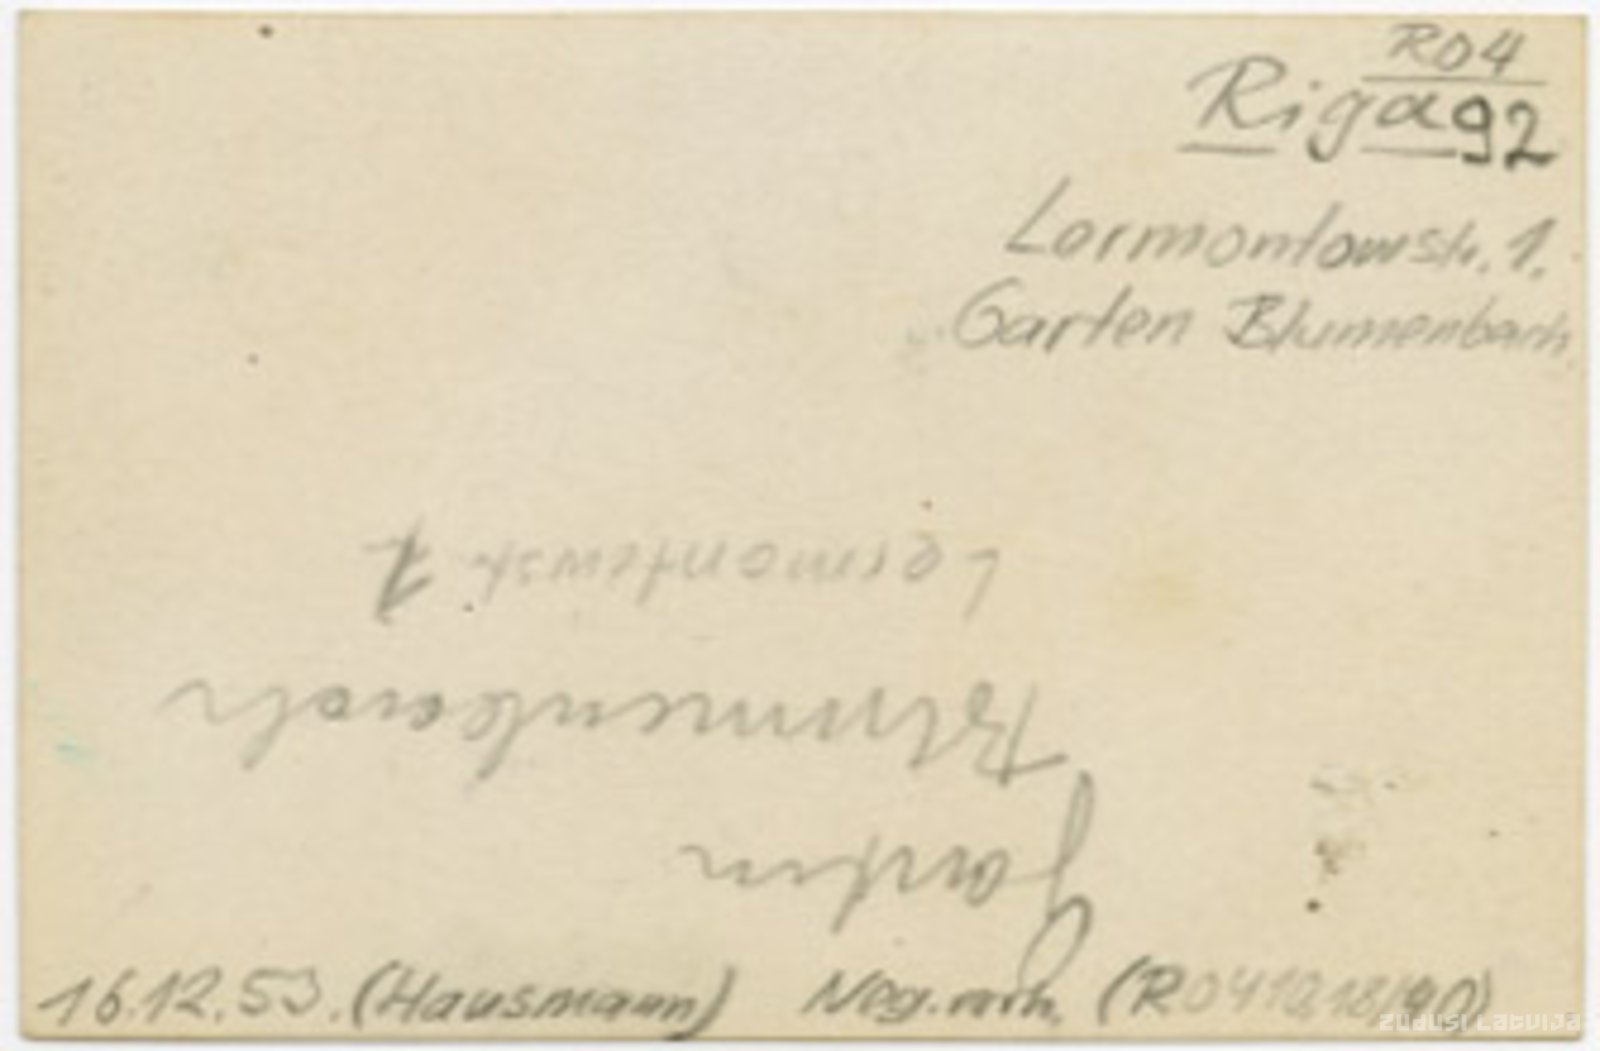 R04
Riga 92
Lermontowstr. 1.
Garten Blumenbach
Garten
Blumenbach
Lermontowstr. 1
16.12.53. (Hausmann) Neg. vorh.
ZUDUSI LATVIJA